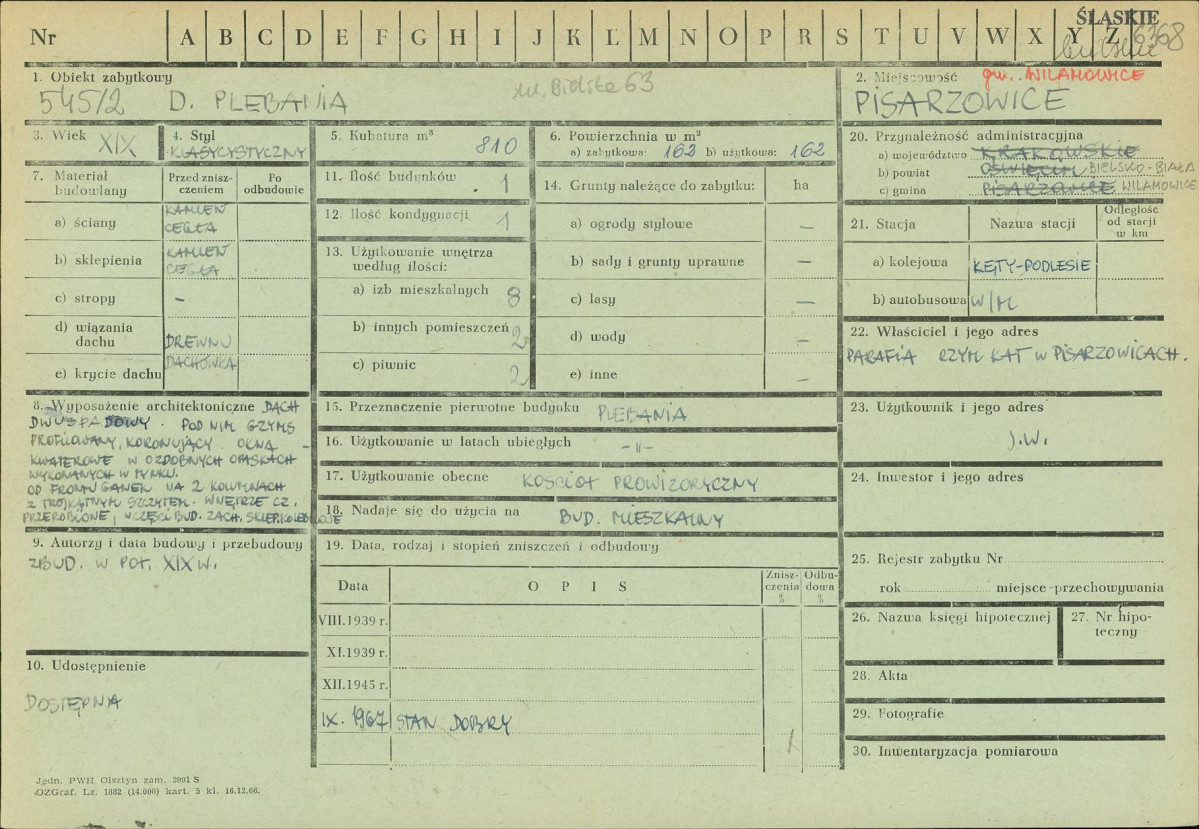 ŚLĄSKIE
Nr A B C D E F G H I J K Ł M N O P R S T U V W X Y Z 6368
bielskie
1. Obiekt zabytkowy
545/2 D. PLEBANIA
ul. Bielska 63
2. Miejscowość gm. WILAMOWICE
PISARZOWICE
3. Wiek XIX
4. Styl
KLASYCYSTYCZNY
5. Kubatura m³
810
6. Powierzchnia w m²
a) zabytkowa: 162 b) użytkowa: 162
20. Przynależność administracyjna
a) województwo KRAKOWSKIE
b) powiat OŚWIĘCIM BIELSKO-BIAŁA
c) gmina PISARZOWICE WILAMOWICE
7. Materiał budowlany
Przed znisz-
czeniem
Po
odbudowie
a) ściany KAMIEŃ
CEGŁA
b) sklepienia KAMIEŃ
CEGŁA
c) stropy –
d) wiązania
dachu DREWNO
e) krycie dachu DACHÓWKA
11. Ilość budynków 1
12. Ilość kondygnacji 1
13. Użytkowanie wnętrza
według ilości:
a) izb mieszkalnych 8
b) innych pomieszczeń 2
c) piwnic 2
14. Grunty należące do zabytku: ha
a) ogrody stylowe –
b) sady i grunty uprawne –
c) lasy –
d) wody –
e) inne –
21. Stacja
Nazwa stacji
Odległość
od stacji
w km
a) kolejowa KĘTY-PODLESIE
b) autobusowa W/M
22. Właściciel i jego adres
PARAFIA RZYM KAT W PISARZOWICACH.
8. Wyposażenie architektoniczne DACH
DWUSPADOWY. POD NIM GZYMS
PROFILOWANY, KORONUJĄCY. OKNA
KWATEROWE W OZDOBNYCH OPASKACH
WYKONANYCH W TYNKU.
OD FRONTU GANEK NA 2 KOLUMNACH
Z TRÓJKĄTNYM SZCZYTEM. WNĘTRZE CZ.
PRZEROBIONE, W CZĘŚCI BUD. ZACH. SKLEP. KOLEBKOWE
15. Przeznaczenie pierwotne budynku PLEBANIA
16. Użytkowanie w latach ubiegłych –„–
17. Użytkowanie obecne KOŚCIÓŁ PROWIZORYCZNY
18. Nadaje się do użycia na BUD. MIESZKALNY
23. Użytkownik i jego adres
J.W.
24. Inwestor i jego adres
9. Autorzy i data budowy i przebudowy
ZBUD. W POŁ. XIX W.
10. Udostępnienie
DOSTĘPNA
19. Data, rodzaj i stopień zniszczeń i odbudowy
Data
OPIS
Znisz-
czenia
%
Odbu-
dowa
%
VIII.1939 r.
XI.1939 r.
XII.1945 r.
IX. 1967 STAN DOBRY
25. Rejestr zabytku Nr
rok miejsce-przechowywania
26. Nazwa księgi hipotecznej
27. Nr hipo-
teczny
28. Akta
29. Fotografie
30. Inwentaryzacja pomiarowa
Jedn. PWH Olsztyn zam. 3991 S
OZGraf. Lz. 1882 (14.000) kart. 5 kl. 16.12.66.